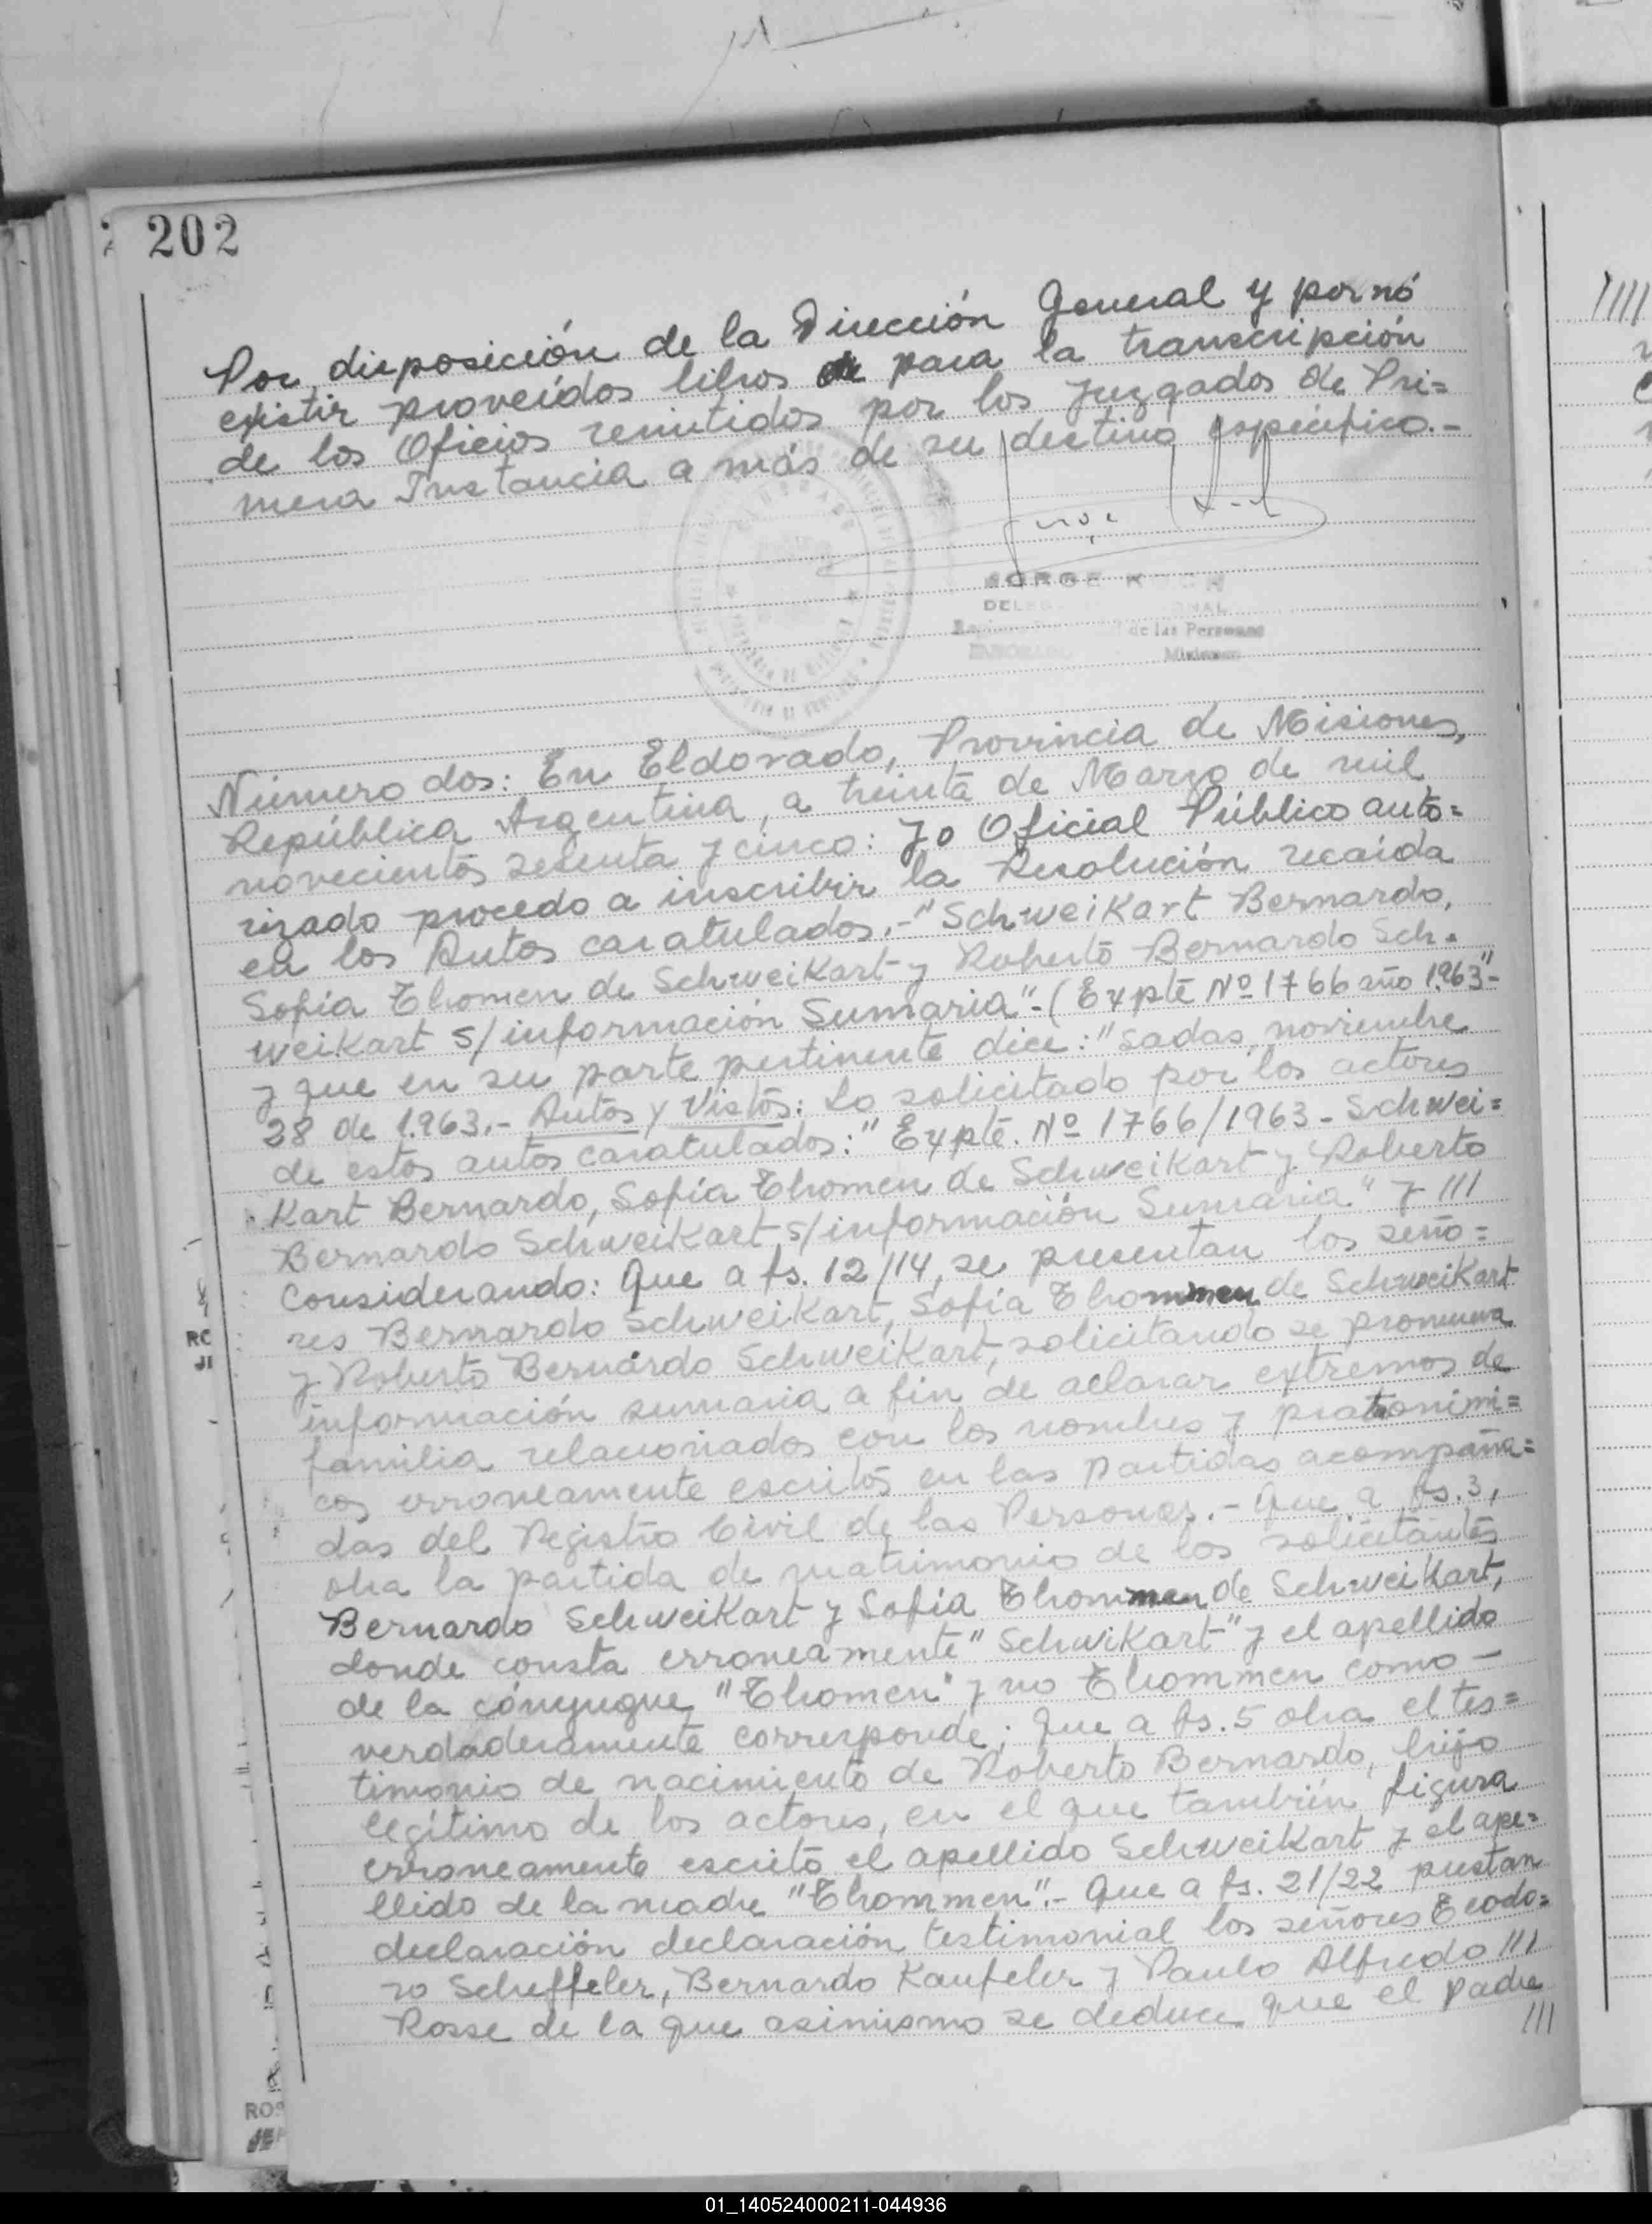 202
Por disposición de la Dirección General y por nó
existir proveídos libros para la transcripción
de los Oficios remitidos por los Juzgados de Pri=
mera Instancia a más de su destino específico.-
JORGE
de las Personas
Misiones
Número dos: En Eldorado, Provincia de Misiones,
República Argentina, a treinta de Marzo de mil
novecientos sesenta y cinco: Yo Oficial Público auto=
rizado procedo a inscribir la Resolución recaída
en los Autos caratulados.-"Schweikart Bernardo,
Sofía Thomen de Schweikart y Roberto Bernardo Sch.
weikart s/información Sumaria"-(Expte Nº 1766 año 1.963"-
y que en su parte pertinente dice:"sadas, noviembre
28 de 1.963.- Autos y Vistos: Lo solicitado por los actores
de estos autos caratulados:" Expte. Nº 1766/1963- Schwei=
kart Bernardo, Sofía Thomen de Schweikart y Roberto
Bernardo Schweikart s/información Sumaria" y ///
Considerando: Que a fs. 12/14, se presentan los seño=
res Bernardo Schweikart, Sofía Thommen de Schweikart
y Roberto Bernardo Schweikart, solicitando se promueva
información sumaria a fin de aclarar extremos de
familia relacionados con los nombres y pratronimi=
cos erroneamente escritos en las Partidas acompaña=
das del Registro Civil de las Personas.- Que a fs. 3,
obra la partida de matrimonio de los solicitantes
Bernardo Schweikart y Sofía Thommen de Schweikart,
donde consta erroneamente "Schwikart" y el apellido
de la cónyugue "Thomen" y no Thommen como -
verdaderamente corresponde; Que a fs. 5 obra el tes=
timonio de nacimiento de Roberto Bernardo, hijo
legítimo de los actores, en el que también figura
erroneamente escrito el apellido Schweikart y el ape=
llido de la madre "Thommen".- Que a fs. 21/22 prestan
declaración declaración testimonial los señores Teodo=
ro Scheffeler, Bernardo Kaufeler y Paulo Alfredo ///
Rosse de la que asimismo se deduce que el padre
///
01_140524000211-044936